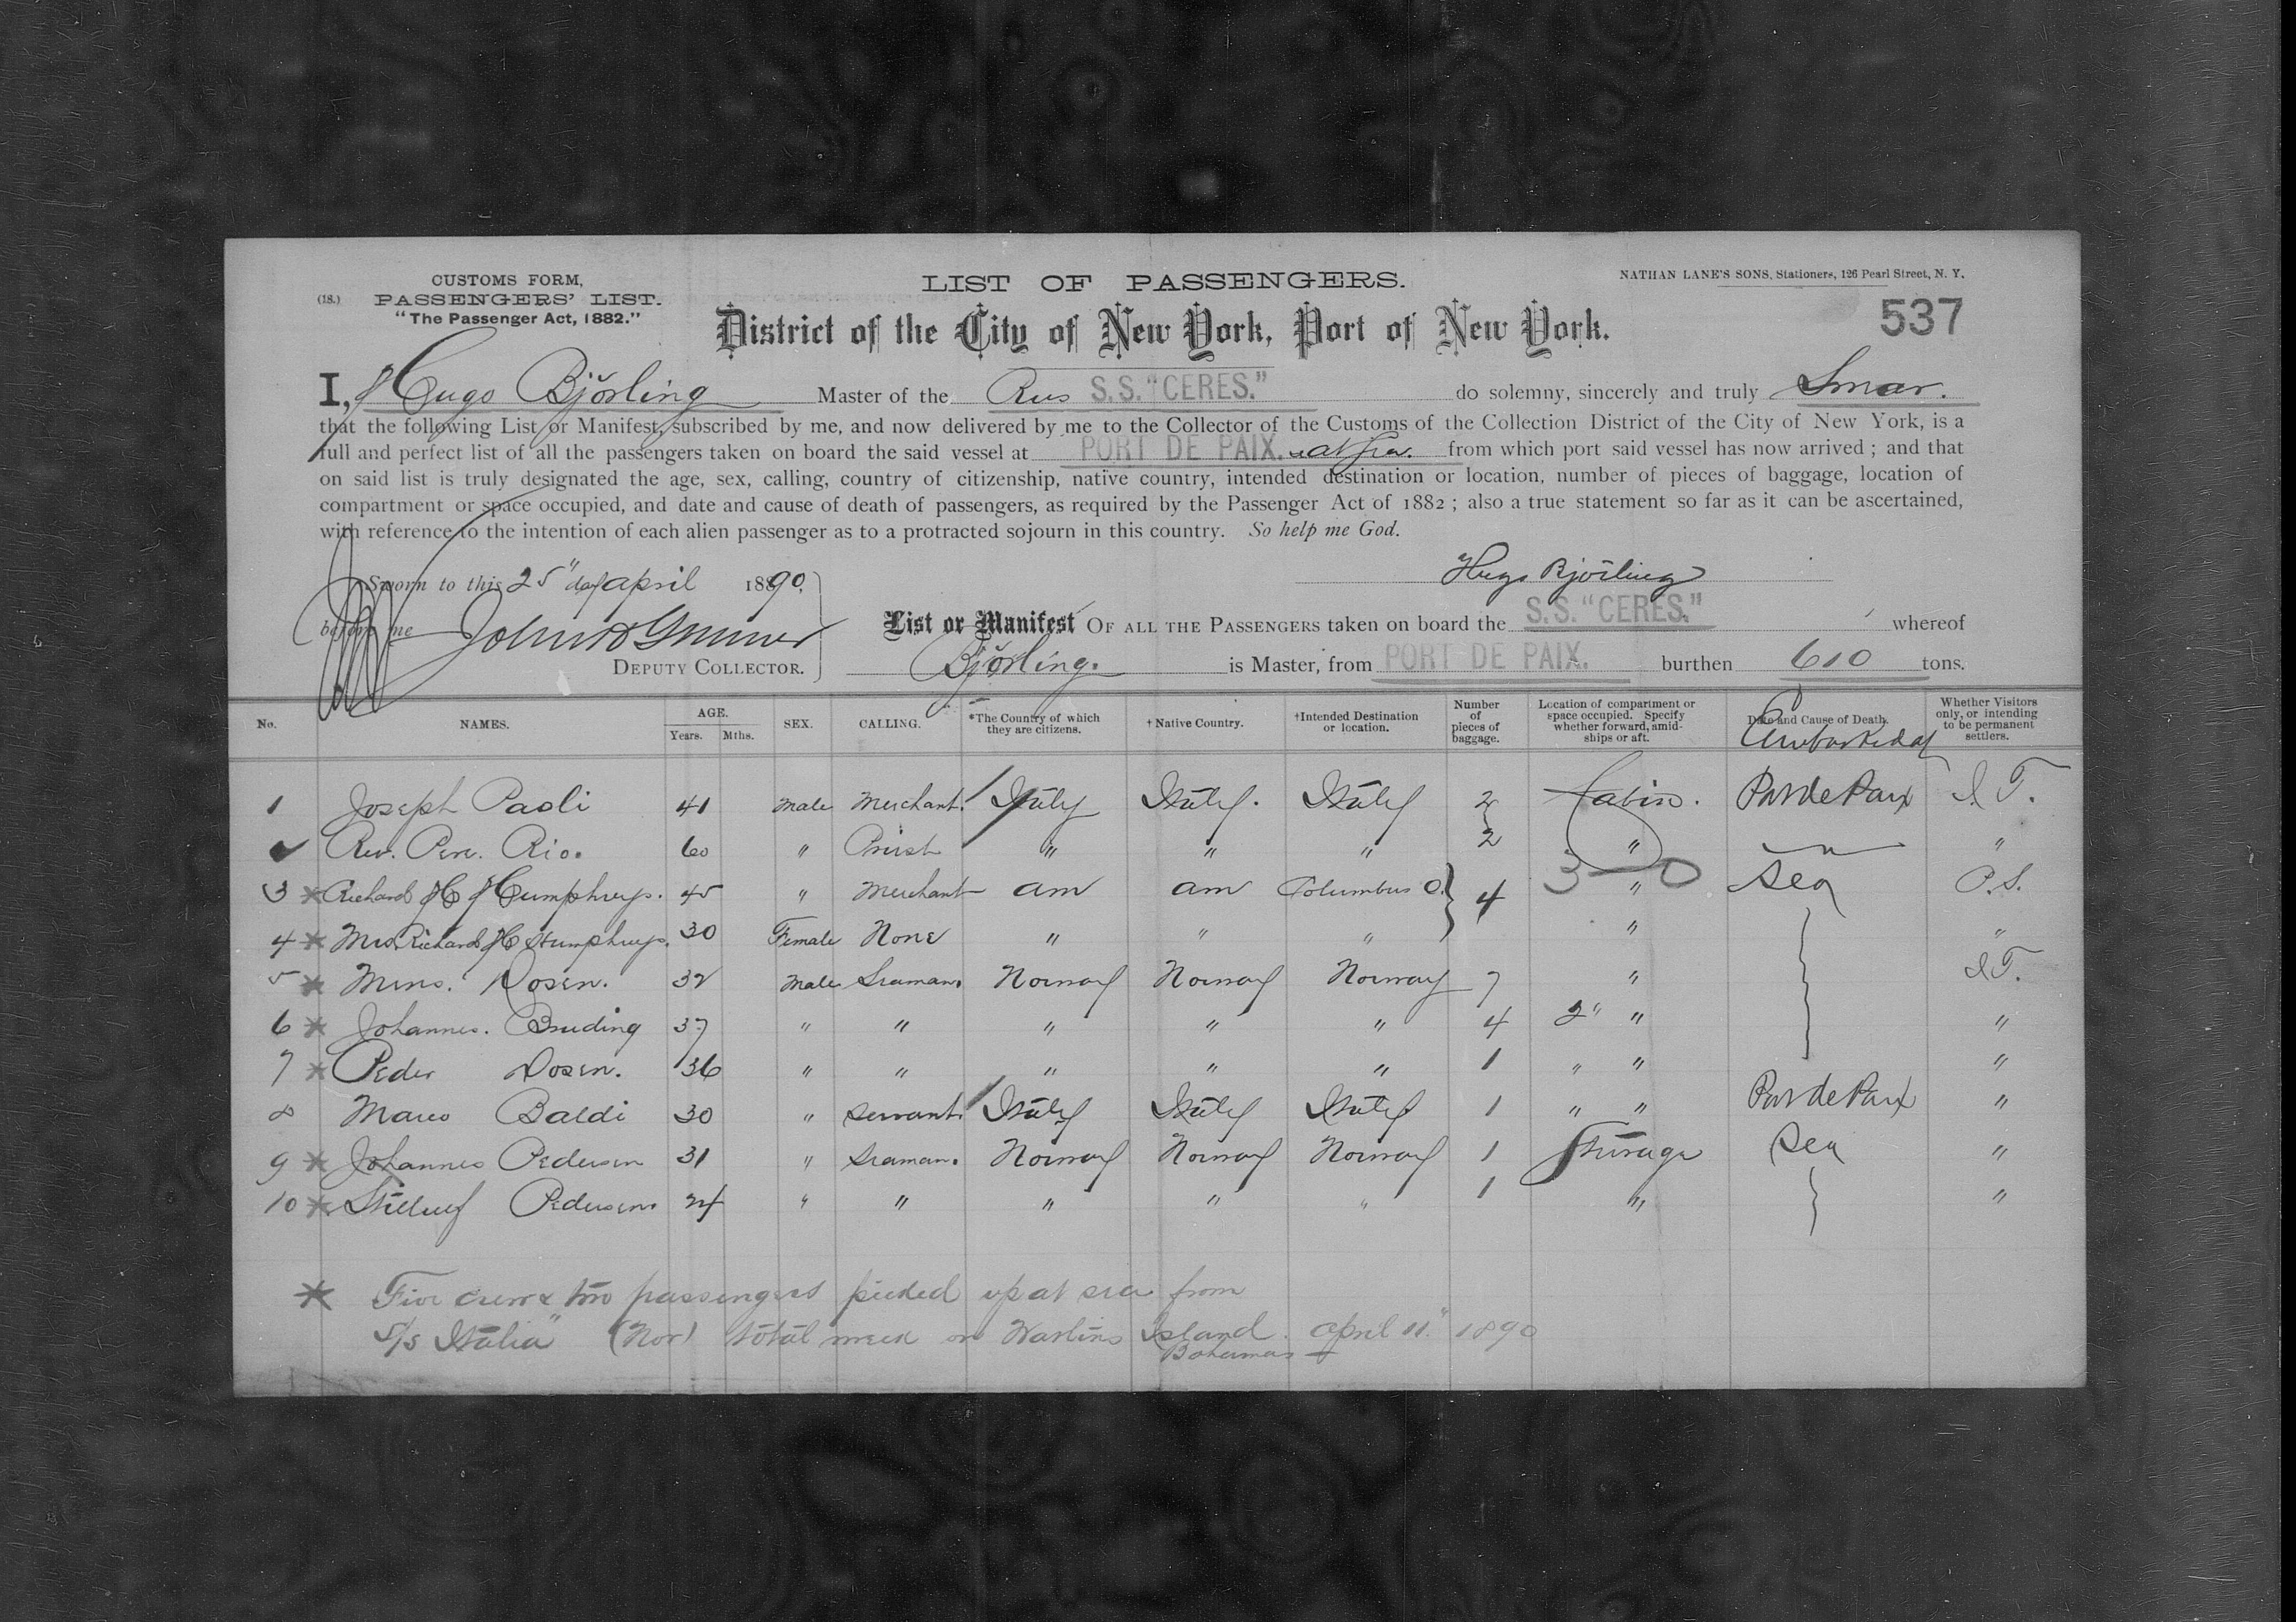 CUSTOMS FORM,
(18.) PASSENGERS' LIST.
"The Passenger Act, 1882."
LIST OF PASSENGERS.
NATHAN LANE'S SONS, Stationers, 126 Pearl Street, N. Y.
537
District of the City of New York, Port of New York.
I, Hugo Björling Master of the Rus S.S. "CERES." do solemny, sincerely and truly Swear.
that the following List or Manifest, subscribed by me, and now delivered by me to the Collector of the Customs of the Collection District of the City of New York, is a
full and perfect list of all the passengers taken on board the said vessel at PORT DE PAIX. & at Sea. from which port said vessel has now arrived ; and that
on said list is truly designated the age, sex, calling, country of citizenship, native country, intended destination or location, number of pieces of baggage, location of
compartment or space occupied, and date and cause of death of passengers, as required by the Passenger Act of 1882 ; also a true statement so far as it can be ascertained,
with reference to the intention of each alien passenger as to a protracted sojourn in this country. So help me God.
Hugo Björling
Sworn to this 25" day april 1890,
before me John
DEPUTY COLLECTOR.
List or Manifest OF ALL THE PASSENGERS taken on board the S.S. "CERES." whereof
Björling. is Master, from PORT DE PAIX. burthen 610 tons.
No. NAMES. AGE. Years. Mths. SEX. CALLING. *The Country of which they are citizens. † Native Country. †Intended Destination or location. Number of pieces of baggage. Location of compartment or space occupied. Specify whether forward, amidships or aft. Date and Cause of Death. Embarked at Whether Visitors only, or intending to be permanent settlers.
1 Joseph Paoli 41 Male Merchant. Italy Italy. Italy 2 Cabin. Port de Paix I. T.
Rev. Pere. Rio. 60 " Priest " " " 2 " " "
3 * Richard H Humphreys. 45 " Merchant am am Columbus O. } 4 3—0 " Sea P. S.
4 * Mrs. Richard H Humphreys. 30 Female None " " " " "
5 * Mons. Rosen. 32 Male Seaman. Norway Norway Norway 7 " I T.
6 * Johannes. Bruding 37 " " " " " 4 2" " "
7 * Peder Rosen. 36 " " " " " 1 " " "
8 Marco Baldi 30 " Servant. Italy Italy Italy 1 " " Port de Paix "
9 * Johannes Pedersen 31 " Seaman. Norway Norway Norway 1 Steerage Sea "
10 * Pedersen. 24 " " " " " 1 " "
* Five crew & two passengers picked up at sea from
S/S Italia" (Nor) total wreck on Watlins Island. april 11" 1890
Bahamas